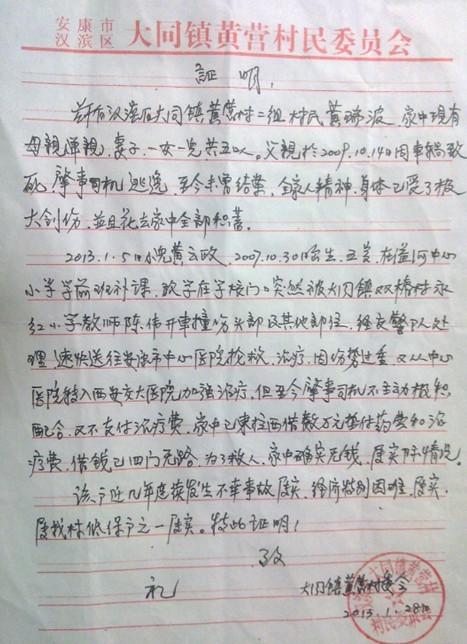 安康市
汉滨区 大同镇黄营村民委员会
証明
兹有汉滨区大同镇黄营村二组村民黄瑞波,家中现有
母親 妻子、一女一児共五口人。父親於2009.10.14日因車祸致
死,肇事司机逃逸 至今未曾结案,全家人精神、身体已受了极
大创伤,並且花去家中全部积蓄。
2013.1.5日小児黄云政,2007.10.30日出生,五岁,在 河中心
小学学前班补课,放学在学校门口突然被大同镇双椿村永
红小学教师陈伟开車撞伤头部及其他部位,经交警队处
理 速快送往安康市中心医院抢救、治疗,因伤势过重 又从中心
医院转入西安交大医院加强治疗,但至今肇事司机不主动极积
配合,又不支付治疗费,家中已東拉西借数万元垫付药费和治
疗费,借钱已四门无路,为了救人,家中确实无钱,属实际情况。
该户近几年连续发生不幸事故属实,经济特别困难,属实,
属我村低保户之一属实。特此证明!
致
礼
大同镇黄营村委会
2013.1.28日